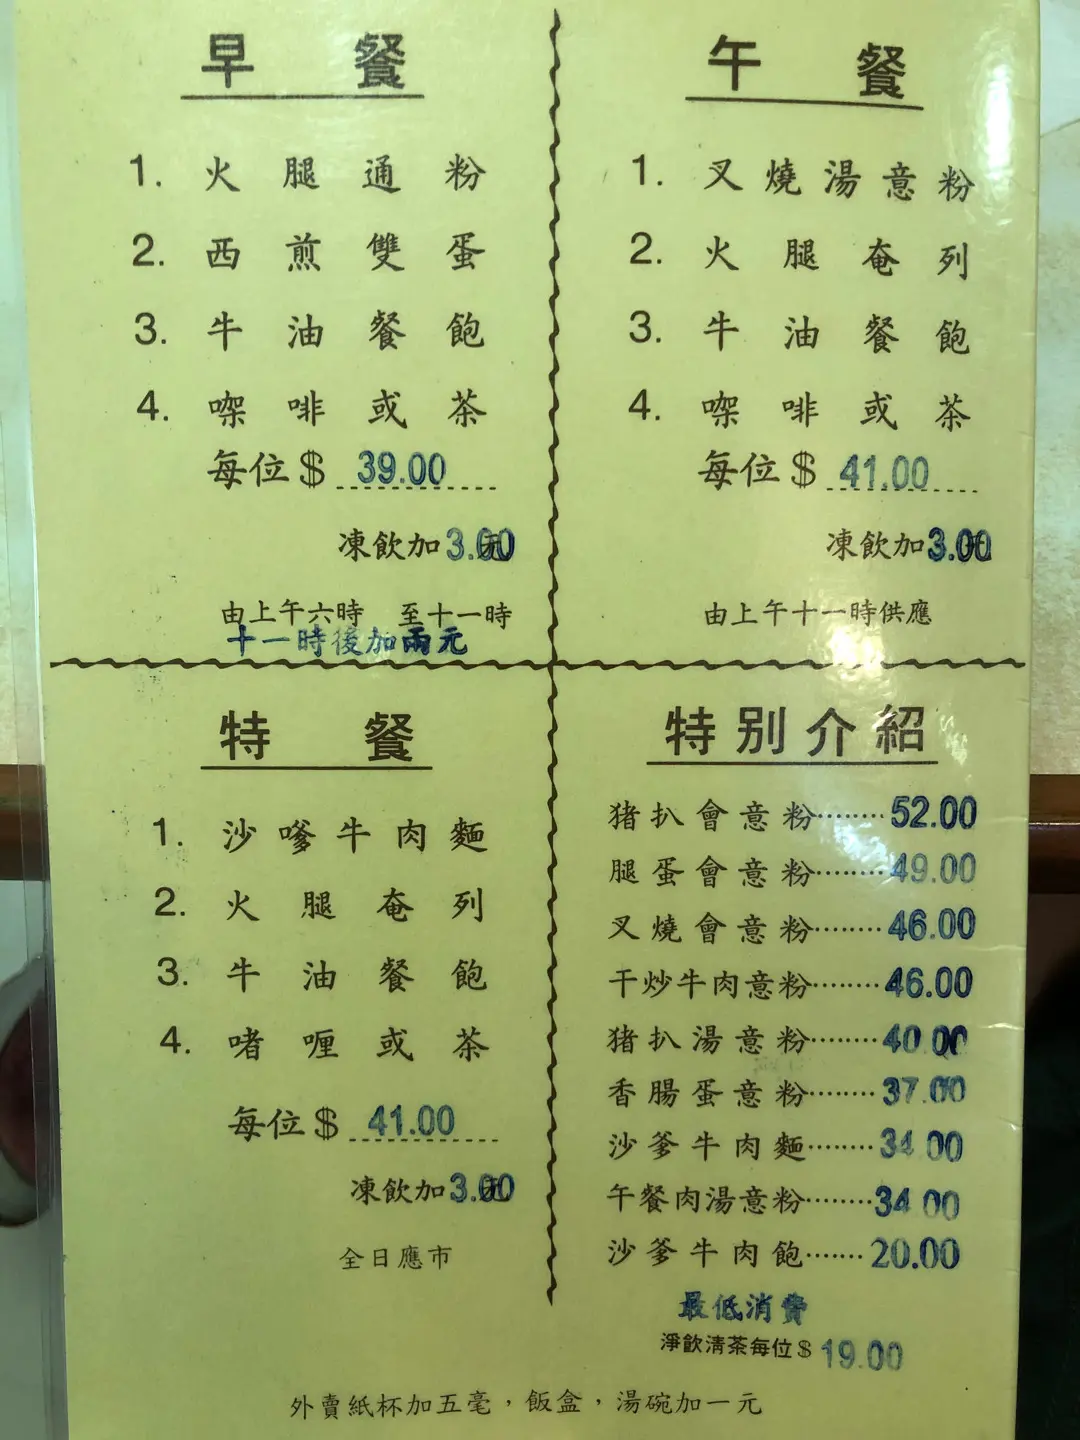 早餐
1. 火腿通粉
2. 西煎雙蛋
3. 牛油餐飽
4. 㗎啡或茶
每位$ 39.00
凍飲加3.00
由上午六時 至十一時
十一時後加兩元
午餐
1. 叉燒湯意粉
2. 火腿奄列
3. 牛油餐飽
4. 㗎啡或茶
每位$ 41.00
凍飲加3.00
由上午十一時供應
特餐
1. 沙嗲牛肉麵
2. 火腿奄列
3. 牛油餐飽
4. 啫喱或茶
每位$ 41.00
凍飲加3.00
全日應市
特别介紹
猪扒會意粉········52.00
腿蛋會意粉········49.00
叉燒會意粉········46.00
干炒牛肉意粉········46.00
猪扒湯意粉········40.00
香腸蛋意粉········37.00
沙爹牛肉麵········34.00
午餐肉湯意粉········34.00
沙爹牛肉飽·······20.00
最低消費
淨飲清茶每位$ 19.00
外賣紙杯加五毫，飯盒，湯碗加一元